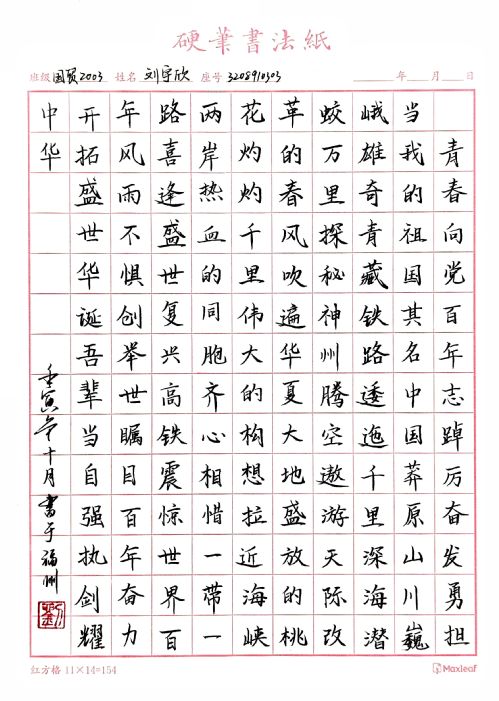 硬筆書法紙
班级 国贸2003 姓名 刘宇欣 座号 3208910303 年 月 日
青春向党百年志踔厉奋发勇担
当我的祖国其名中国莽原山川巍
峨雄奇青藏铁路逶迤千里深海潜
蛟万里探秘神州腾空遨游天际改
革的春风吹遍华夏大地盛放的桃
花灼灼千里伟大的构想拉近海峡
两岸热血的同胞齐心相惜一带一
路喜逢盛世复兴高铁震惊世界百
年风雨不惧创举世瞩目百年奋力
开拓盛世华诞吾辈当自强执剑耀
中华
壬寅年十月書于福州
红方格 11×14=154
Maxleaf